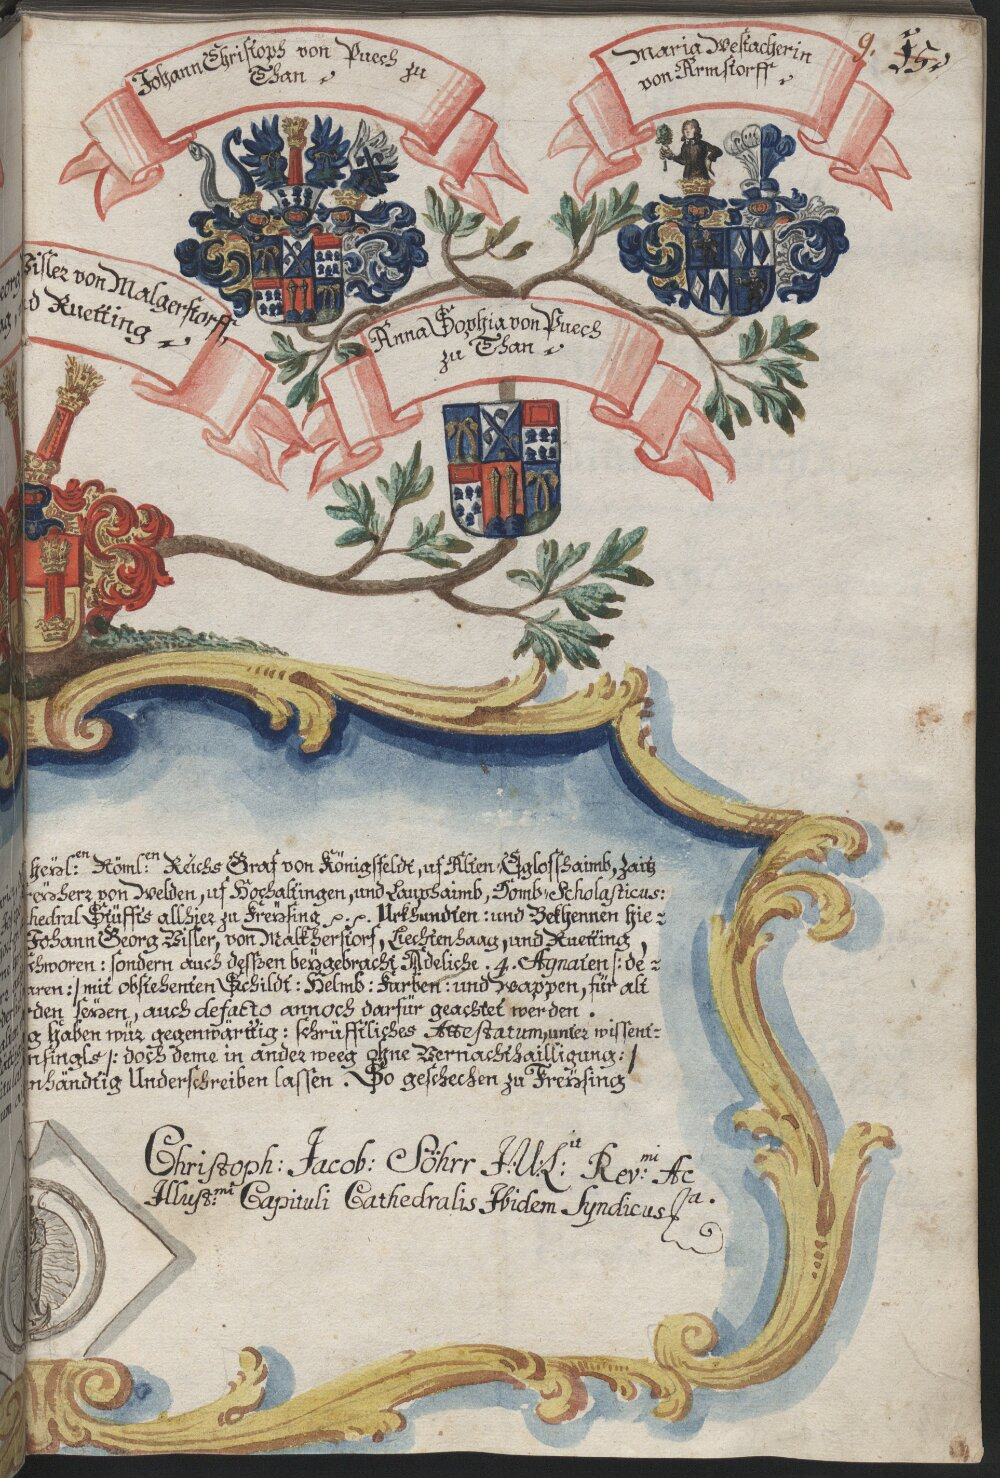 9.
Johann Christoph von Puech zu
Than
Maria Westacherin
von Armstorff
Bisler von Malgerstorff,
Ruetting
Anna Sophia von Puech
zu Than
Heyl:en Röml:en Reichs Graf von Königsfeldt, uf Alten Eglofshaimb, Zaitz
von Welden, uf Hochaltingen, und Lauphaimb, Domb-Scholasticus:
Stüffts allhier zu Freysing x. x. Urkhundten: und Bekhennen hie-
Johann Georg Bisler, von Malkherstorf, Liechtenhaag, und Ruetting,
schworen: sondern auch dessen beygebracht Adeliche .4. Agnaten /: de-
waren:/ mit obstehenten Schildt: Helmb: Farben: und Wappen, für alt
rden seyen, auch defacto annoch darfür geachtet werden.
g haben wür gegenwärttig: schrüfftliches Attestatum, unter wissent-
nsingls /: doch deme in ander weeg ohne Vernachthailligung: /
nhändtig Underschreiben lassen. So geschechen zu Freysing
Christoph: Jacob: Söhrr J:U:L:it Rev:mi Ac
Illust:mi Capituli Cathedralis Ibidem Syndicus